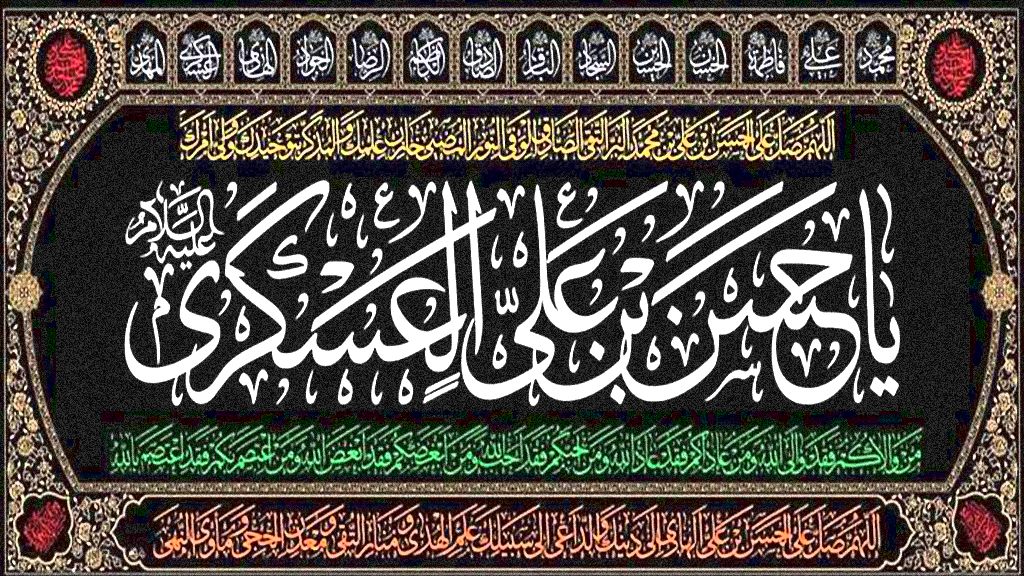 محمد علی فاطمة الحسن الحسین السجاد الباقر الصادق الکاظم الرضا الجواد الهادی العسکری المهدی
اللهم صل علی الحسن بن علی بن محمد البر التقی الصادق الوفی النور المضیء خازن علمک والمذکر بتوحیدک وولی امرک
یا حسن بن علیّ العسکری
علیه السلام
من والاکم فقد والی الله ومن عاداکم فقد عاد الله ومن احبکم فقد احب الله ومن ابغضکم فقد ابغض الله ومن اعتصم بکم فقد اعتصم بالله
اللهم صل علی الحسن بن علی الهادی الی دینک والداعی الی سبیلک علم الهدی ومنار التقی ومعدن الحجی وماوی النهی